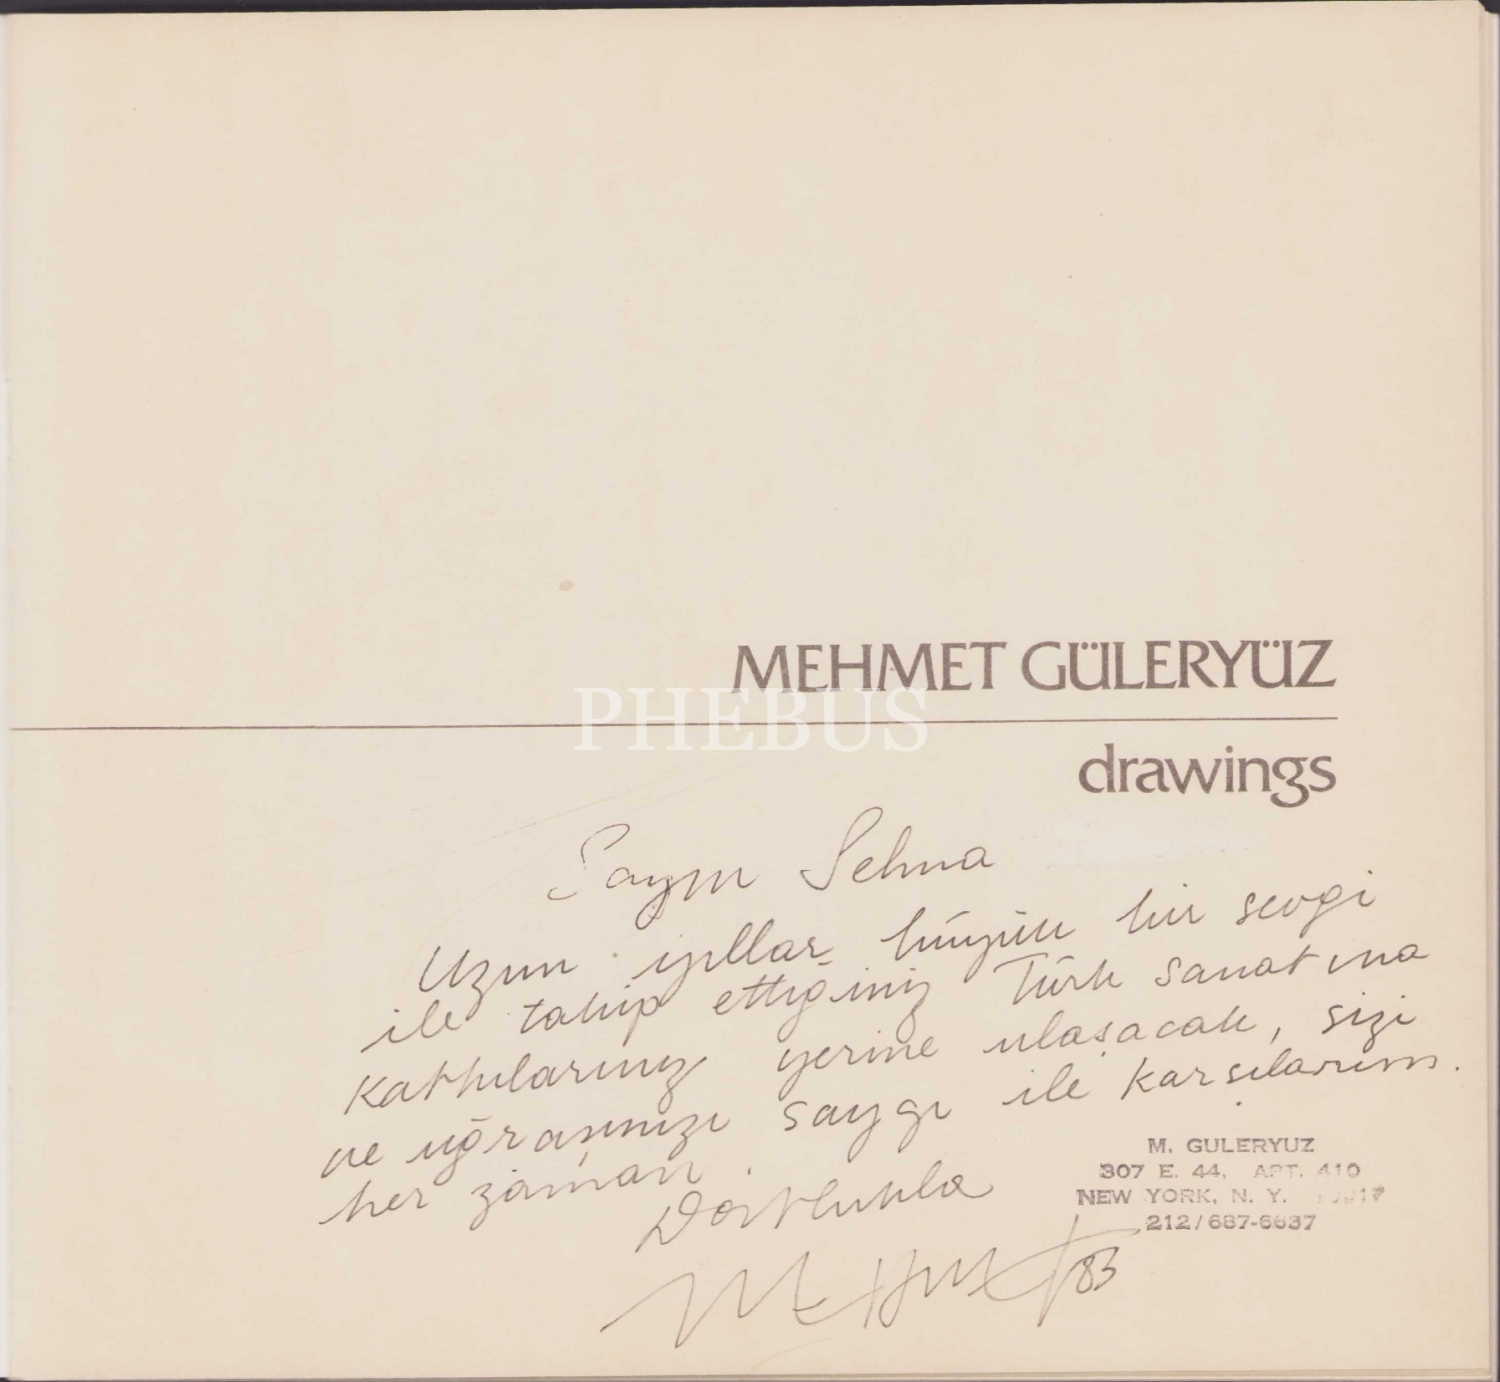 MEHMET GÜLERYÜZ
PHEBUS
drawings
Sayın Selma
Uzun yıllar büyük bir sevgi
ile takip ettiğiniz Türk sanatına
katkılarınız yerine ulaşacak, sizi
ve uğraşınızı saygı ile karşılarım.
her zaman.
Dostlukla
Mehmet 83
M. GULERYUZ
307 E. 44, APT. 410
NEW YORK, N. Y. 10017
212/687-6637